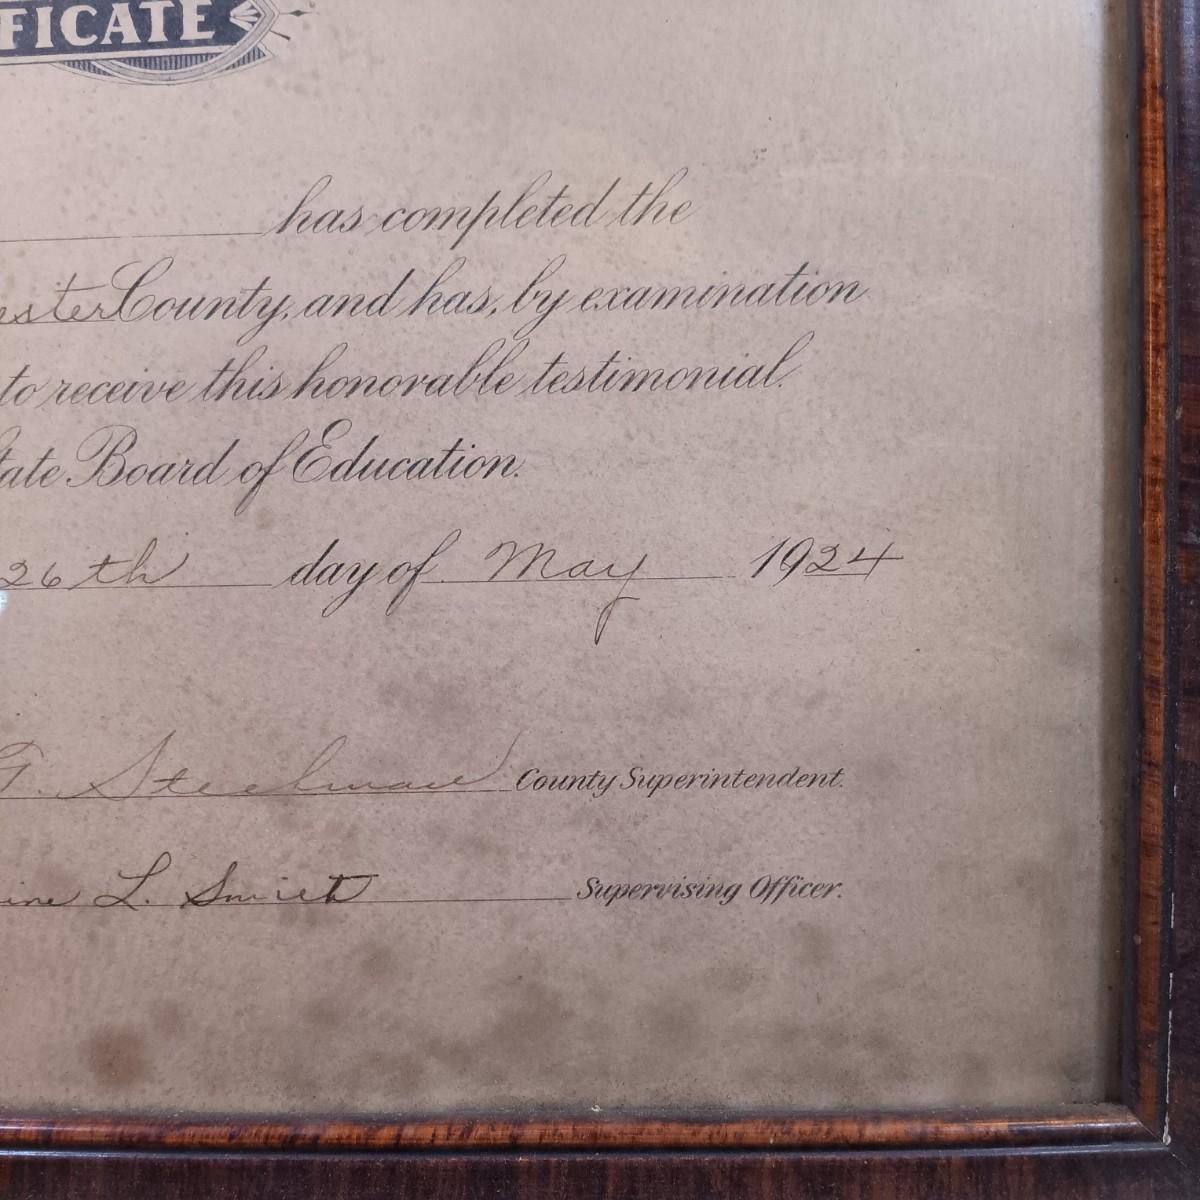 FICATE
has completed the
ester County, and has, by examination
to receive this honorable testimonial.
tate Board of Education.
26th day of May 1924
T. Steelman County Superintendent.
ine L. Smith Supervising Officer.